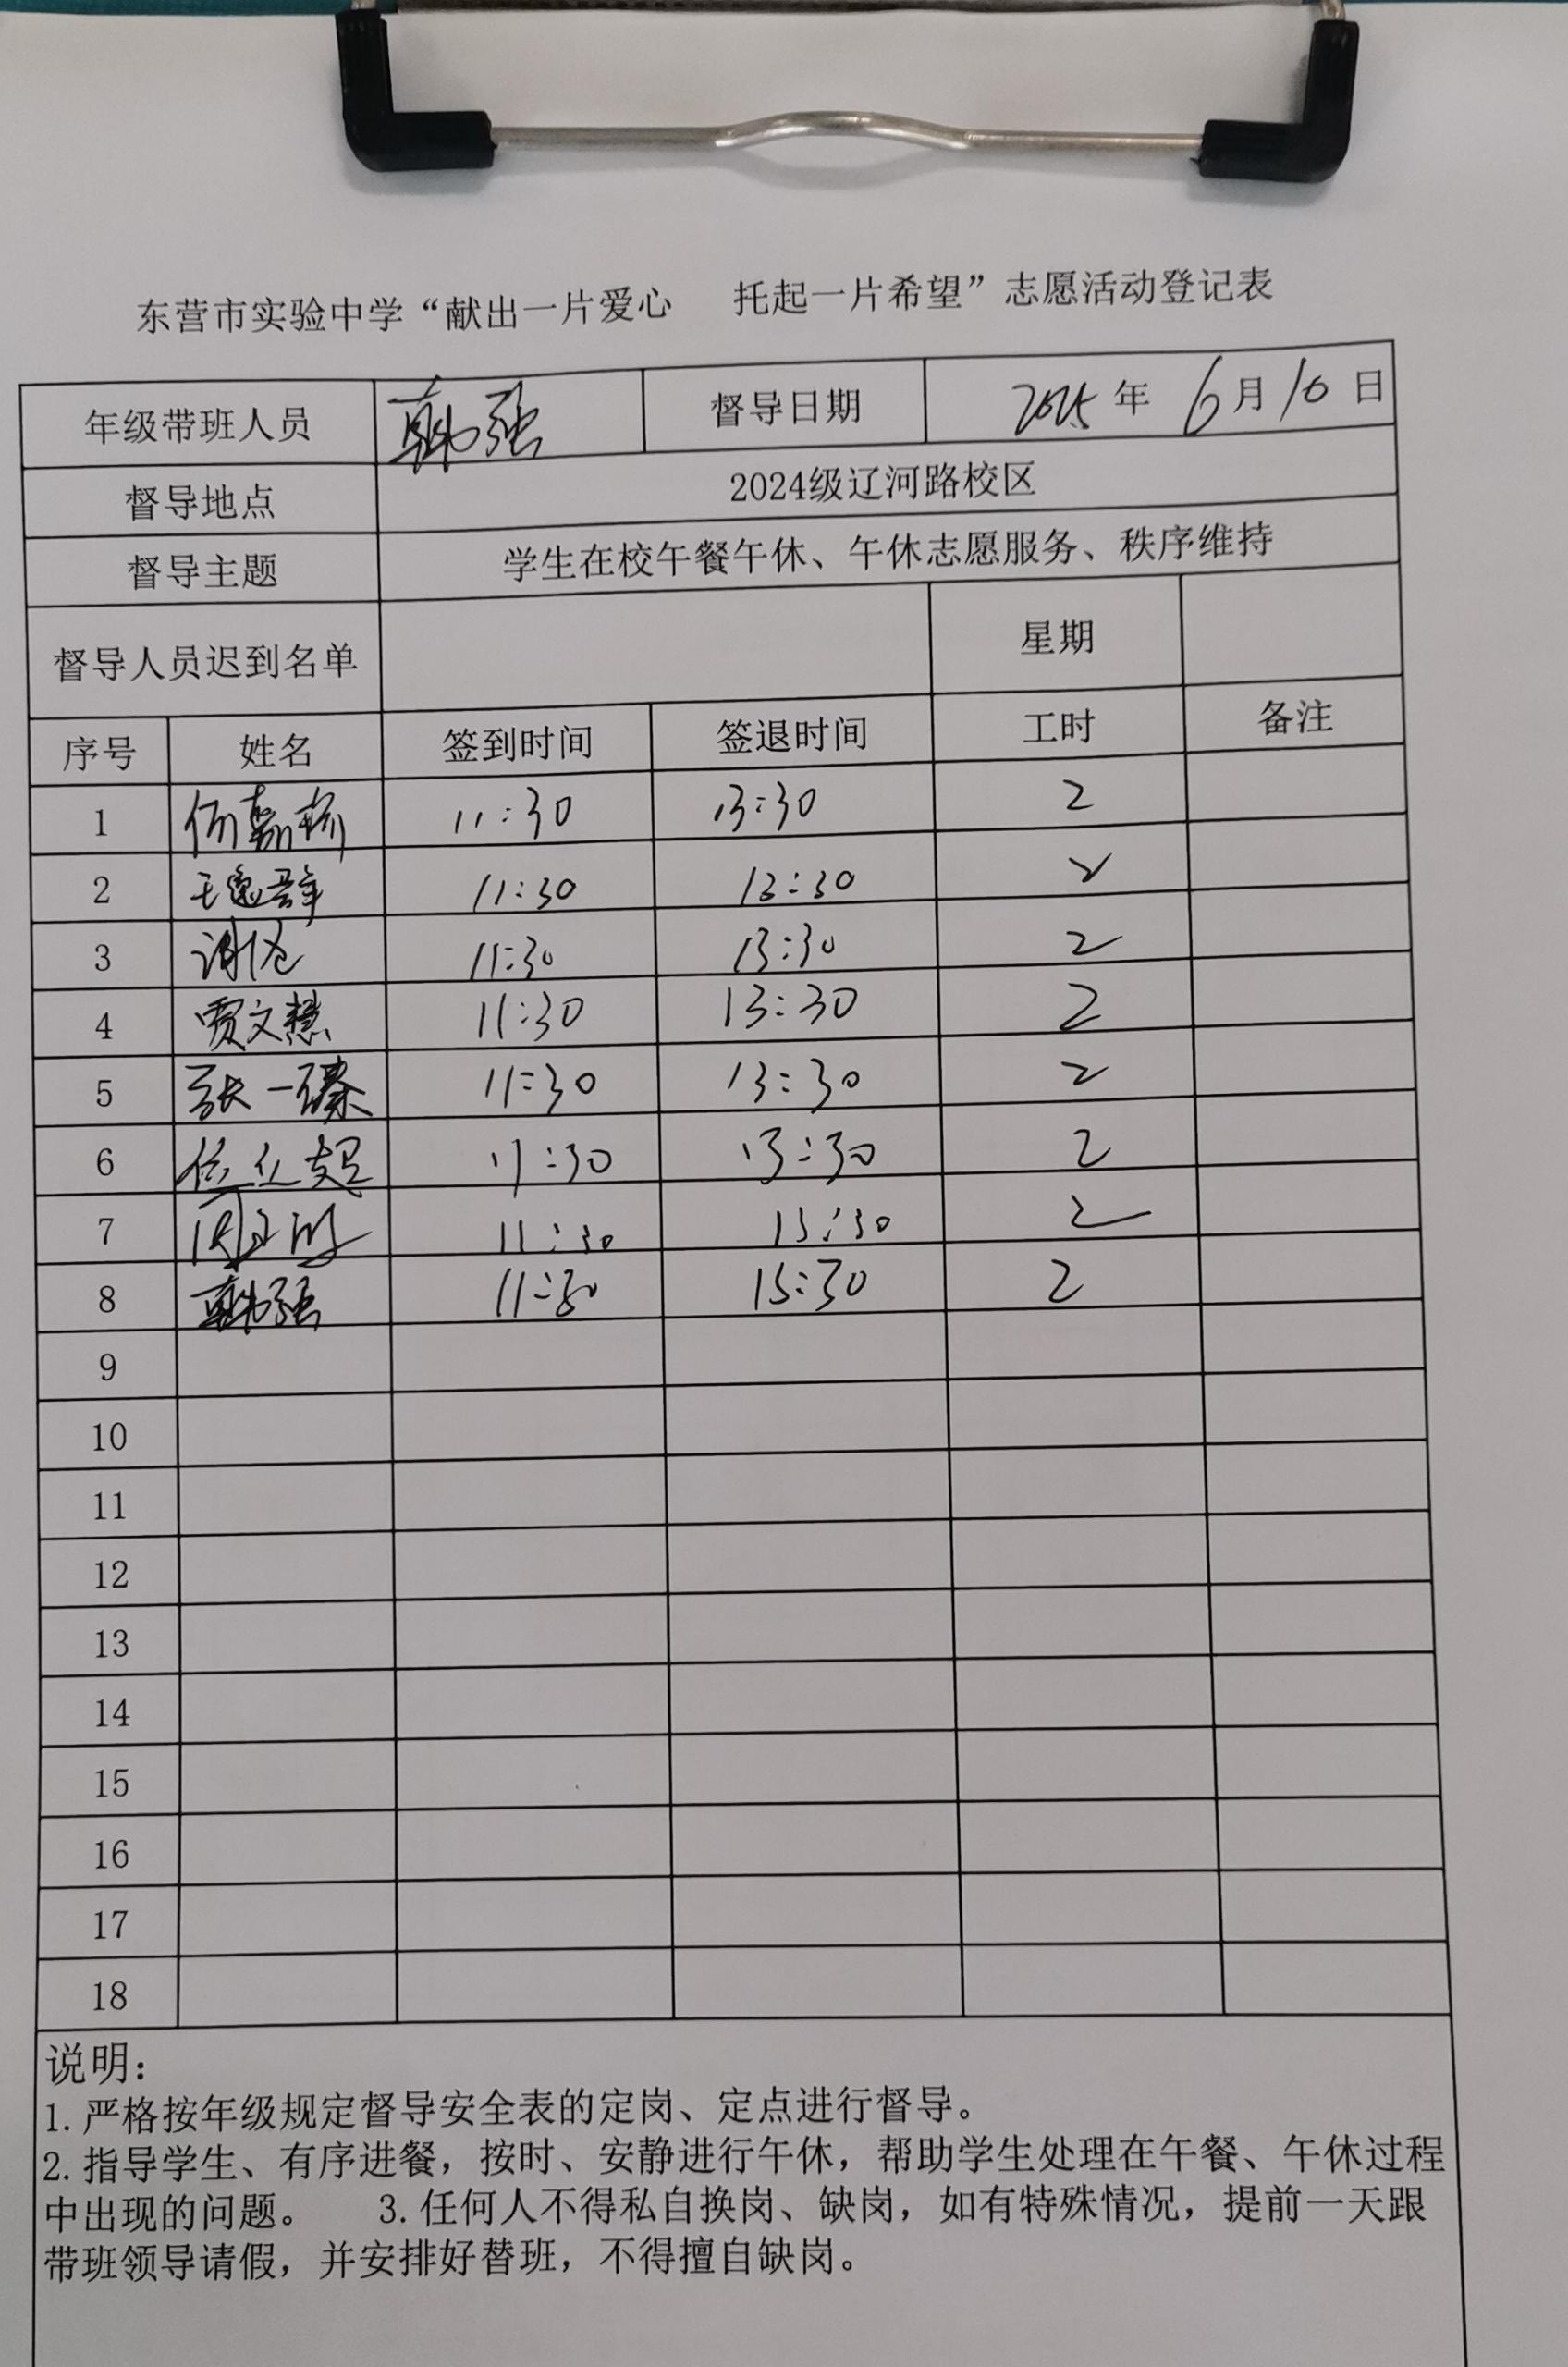 东营市实验中学“献出一片爱心 托起一片希望”志愿活动登记表
年级带班人员 韩强 督导日期 2025年 6月10日
督导地点 2024级辽河路校区
督导主题 学生在校午餐午休、午休志愿服务、秩序维持
督导人员迟到名单 星期
序号 姓名 签到时间 签退时间 工时 备注
1 11:30 13:30 2
2 王逸群 11:30 13:30 2
3 11:30 13:30 2
4 贾文慧 11:30 13:30 2
5 张一臻 11:30 13:30 2
6 11:30 13:30 2
7 11:30 13:30 2
8 韩强 11:30 13:30 2
9
10
11
12
13
14
15
16
17
18
说明：
1.严格按年级规定督导安全表的定岗、定点进行督导。
2.指导学生、有序进餐，按时、安静进行午休，帮助学生处理在午餐、午休过程
中出现的问题。 3.任何人不得私自换岗、缺岗，如有特殊情况，提前一天跟
带班领导请假，并安排好替班，不得擅自缺岗。